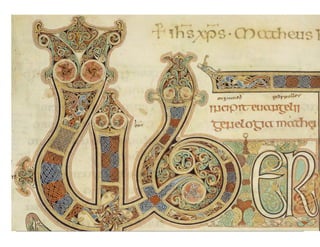 + ihs xps · Mattheus
incipit euangelii
genelogia mathei
Lib
ER